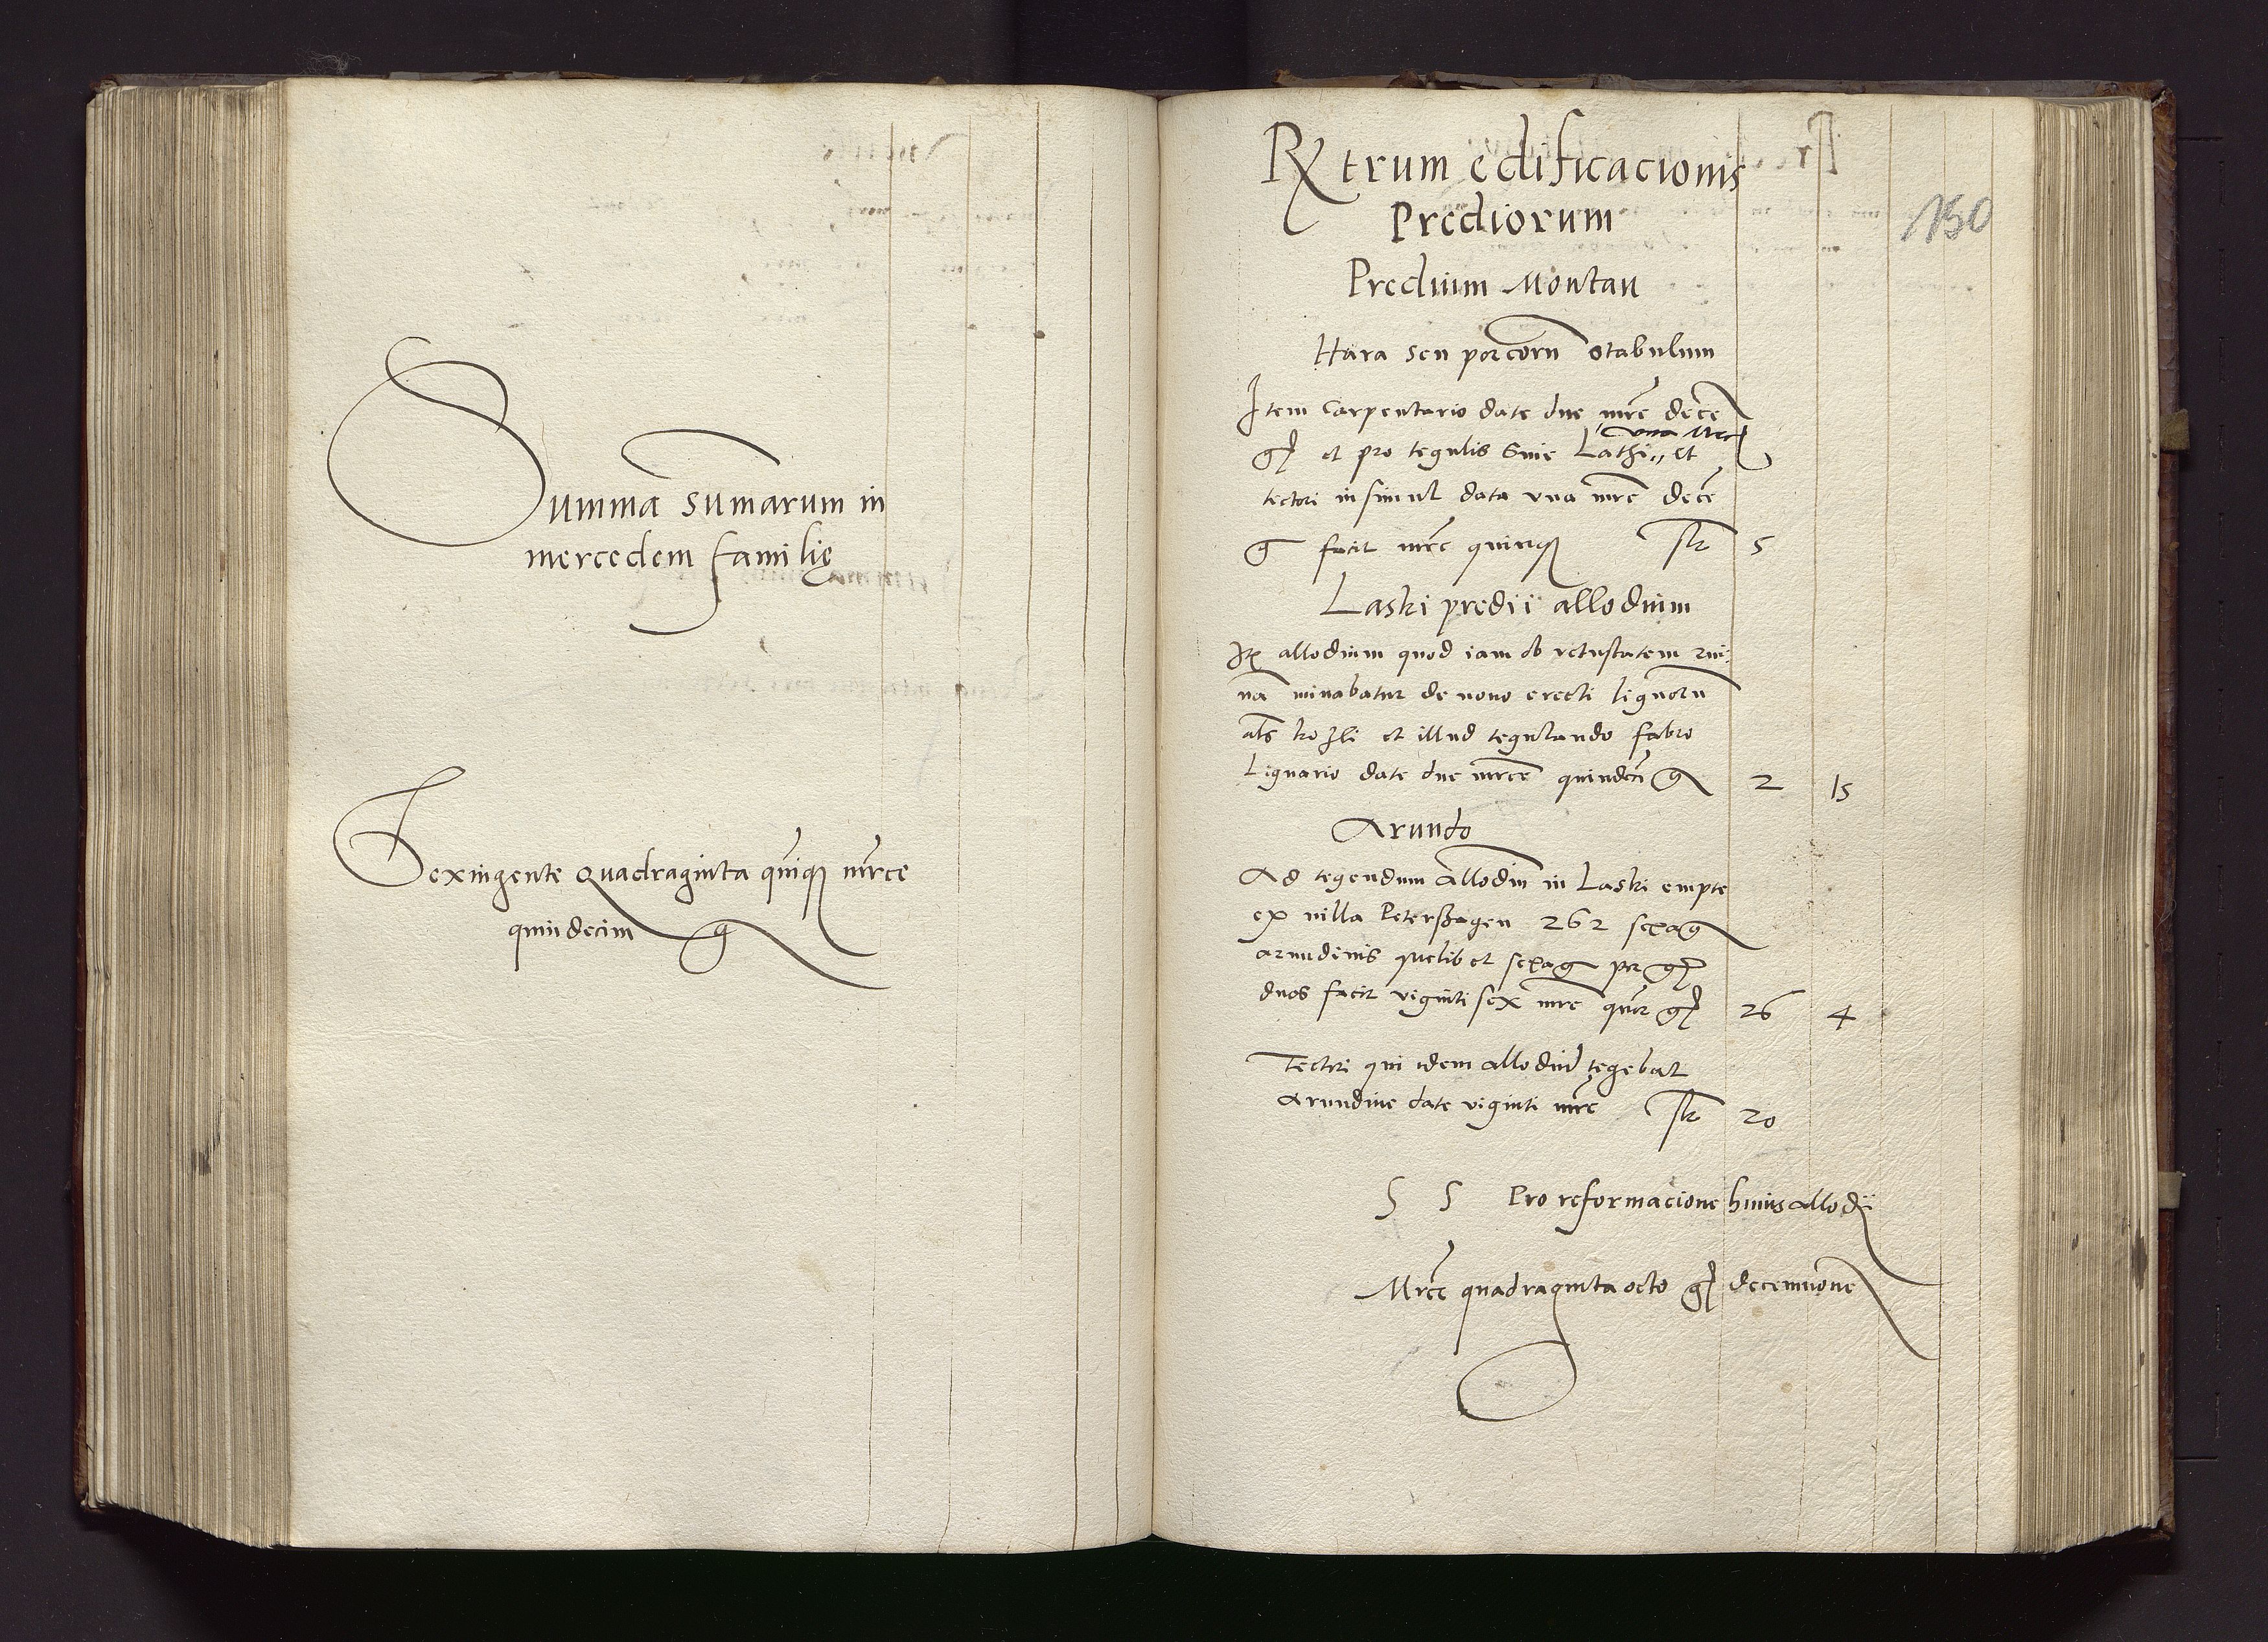 Summa sumarum in
mercedem familię
Sexingente quadraginta quinqꝫ mrce
quindecim g
Rx trum edificacionis
150
Prediorum
Predium Montau
Hara seu porcoru stabulum
Item Carpentario date due mrce dece
una mrc
gꝭ et pro tegulis sive Lathi " et
tectori in simul data una mrc dece
g facit mrc quinqꝫ 5
Laski predii allodium
Itꝫ allodium quod iam ob vetustatem rui:
na minabatur de novo erecti lignoru
als kozli et illud tegulando fabro
Lignario date due mrce quindeci g 2 15
Arundo
Ad tegendum allodiu in Laski empte
ex villa Petershagen 262 sexag
arundinis quelibet sexag per gꝭ
duos facit viginti sex mrc quor gꝭ 26 4
Tectori qui idem allodiu tegebat
arundine date viginti mrc 20
S S Pro reformacione huius allodii
Mrce quadraginta octo gꝭ decemnove